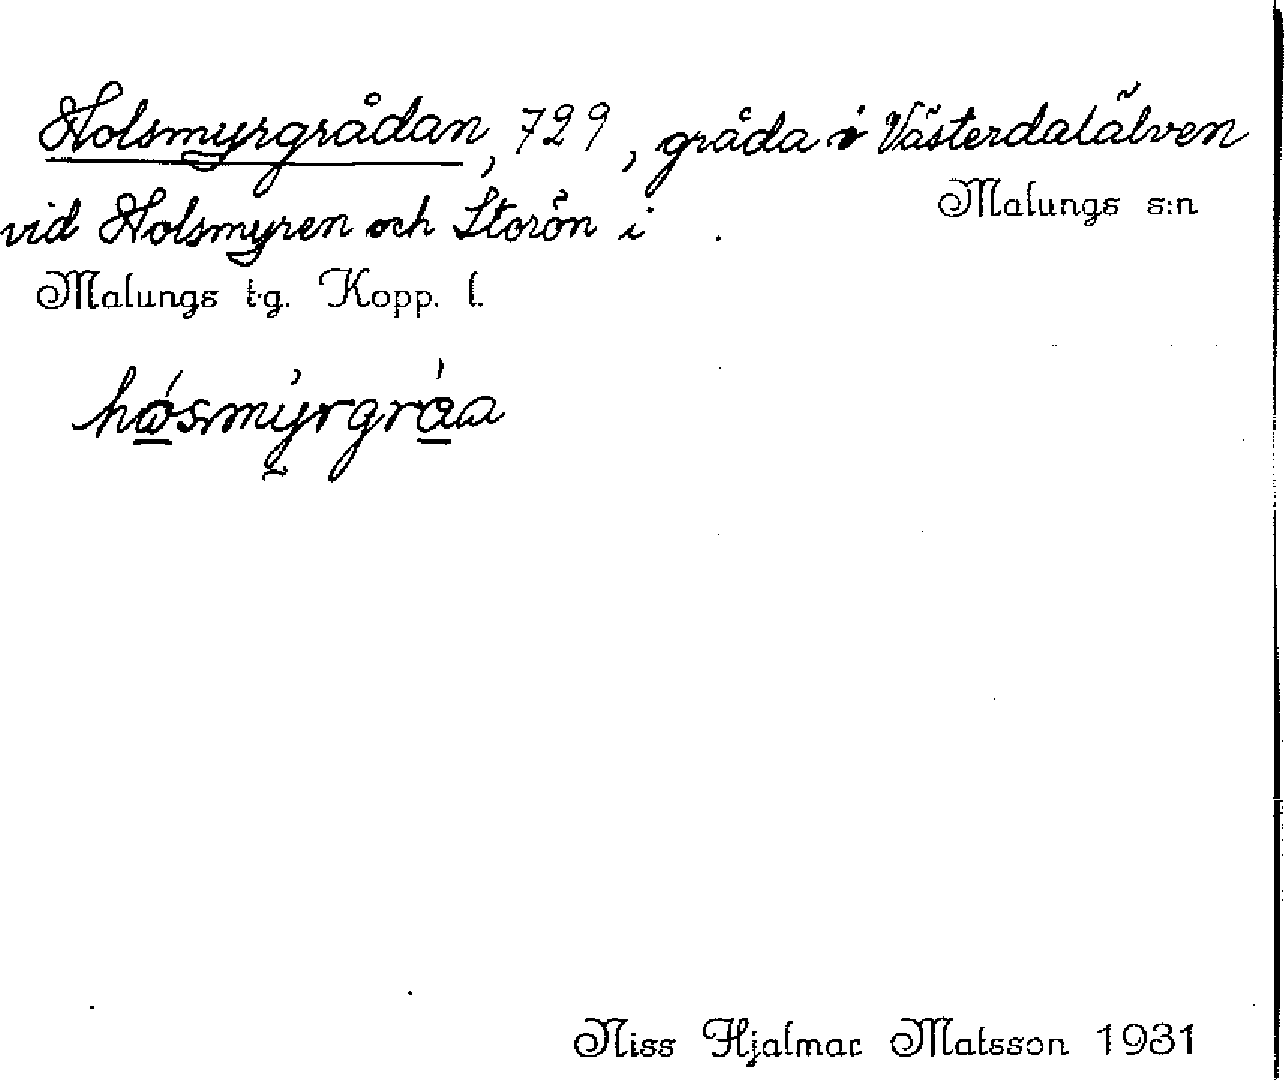 Holsmyrgrådan, 729, gråda i Västerdalälven
Malungs s:n
vid Holsmyren och Storön i
Malungs t.g. Kopp. l.
hósmýrgráa
Niss Hjalmar Matsson 1931